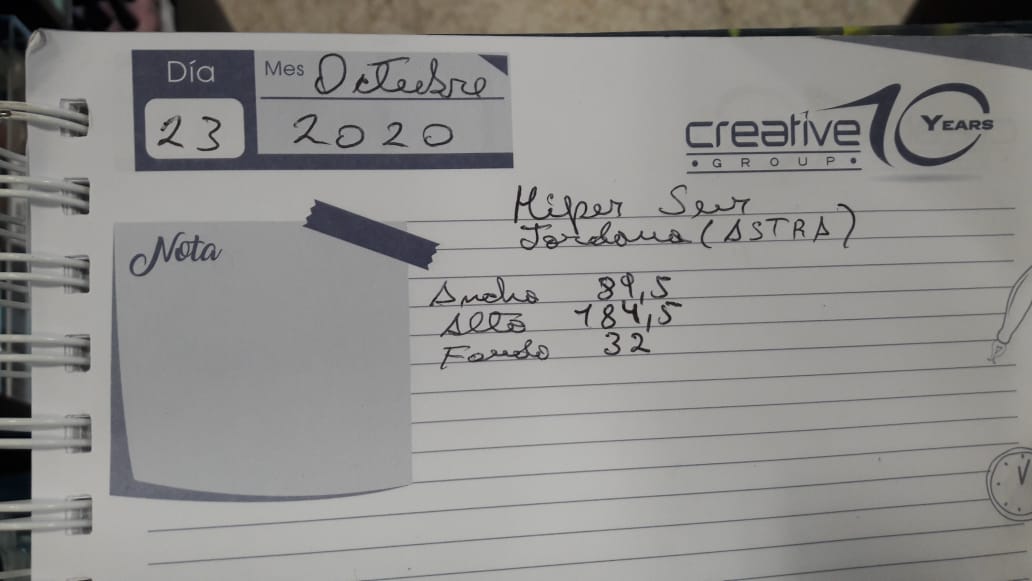 Día
Mes Octubre
23
2020
creative
GROUP
10 YEARS
Hiper Sur
Jordana (ASTRA)
Nota
Ancho 89,5
Alto 184,5
Fondo 32